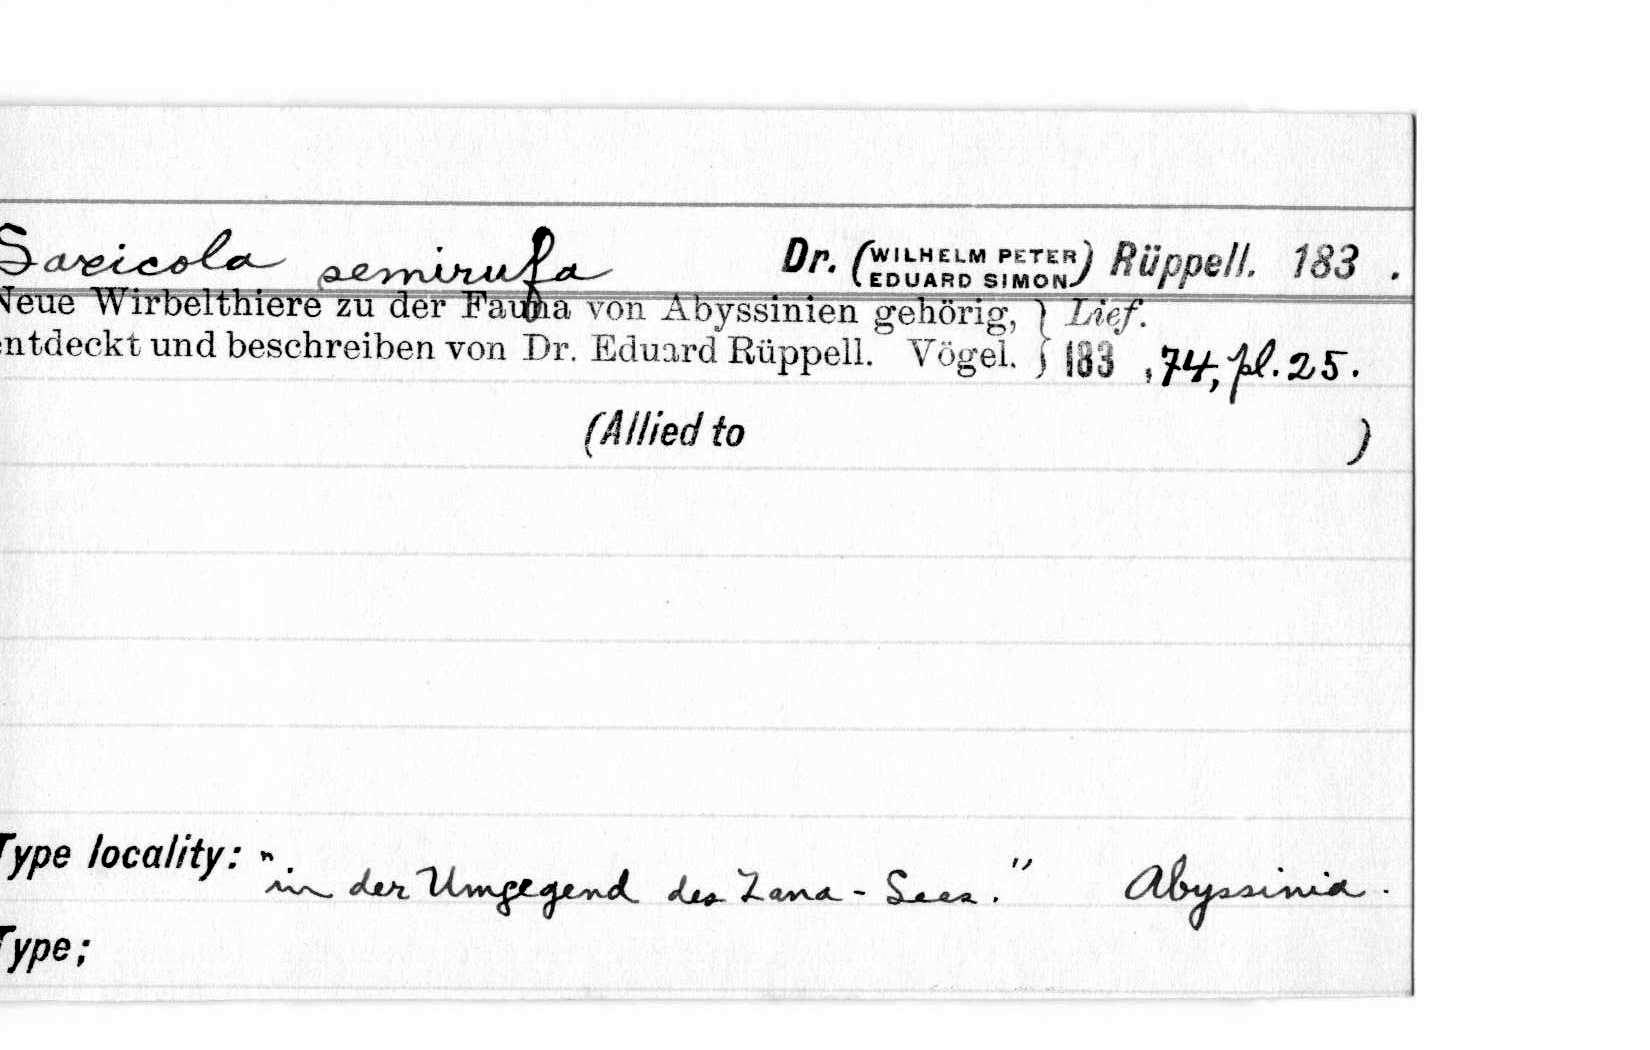 Saxicola semirufa Dr. (WILHELM PETER EDUARD SIMON) Rüppell. 183 .
Neue Wirbelthiere zu der Fauna von Abyssinien gehörig, } Lief.
entdeckt und beschreiben von Dr. Eduard Rüppell. Vögel. } 183 , 74, pl. 25.
(Allied to )
Type locality: "in der Umgegend des Zana-Sees." Abyssinia.
Type;